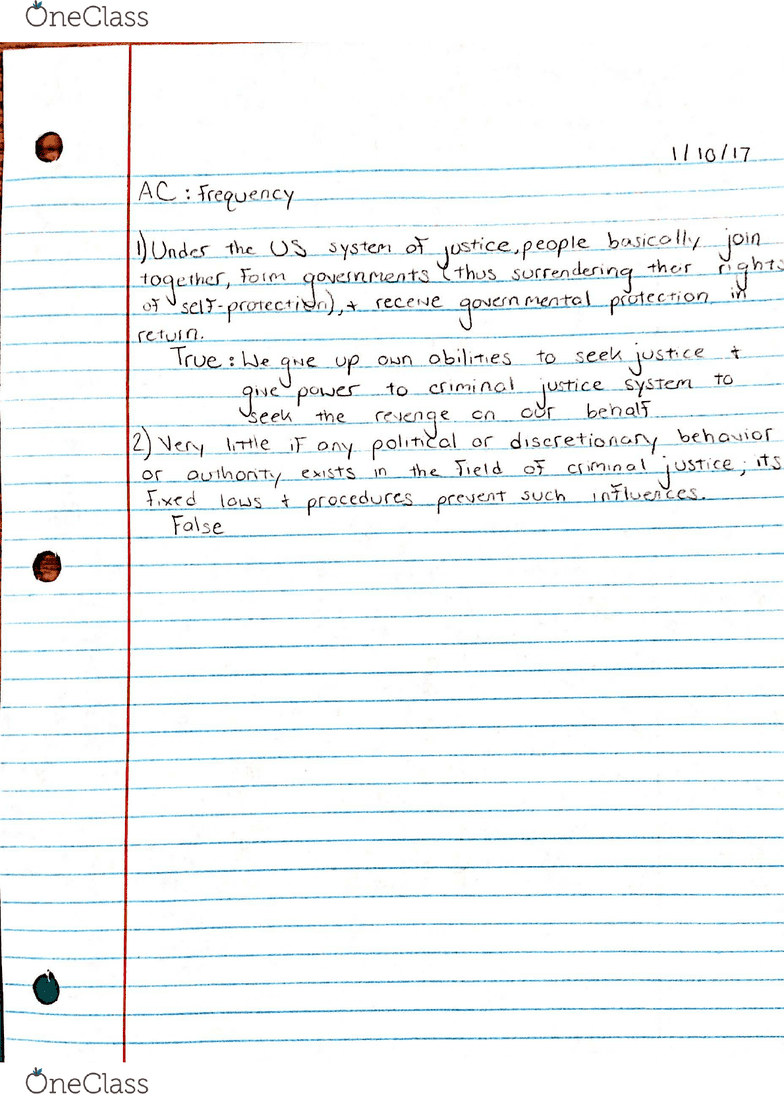 OneClass
1/10/17
AC : Frequency
1) Under the US system of justice, people basically join
together, form governments (thus surrendering ther rights
of self-protection), + receive governmental protection in
return.
True : We give up own abilities to seek justice +
give power to criminal justice system to
seek the revenge on our behalf
2) Very little if any political or discretionary behavior
or authority exists in the field of criminal justice; its
fixed laws + procedures prevent such influences.
False
OneClass